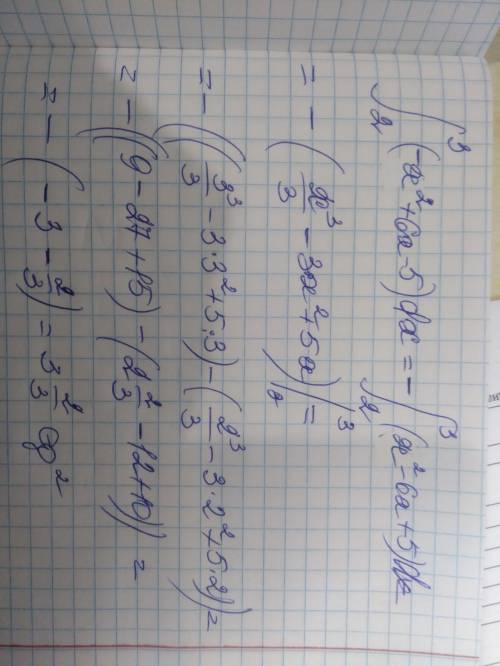 ∫₂³ (-x²+6x-5)dx = -∫₂³ (x²-6x+5)dx
= -(x³/3 - 3x²+5x)|₂³ =
= -((3³/3 - 3·3²+5·3) - (2³/3 - 3·2²+5·2)) =
= -((9-27+15) - (2 2/3 - 12+10)) =
= -(-3 - 2/3) = 3 2/3 ед²